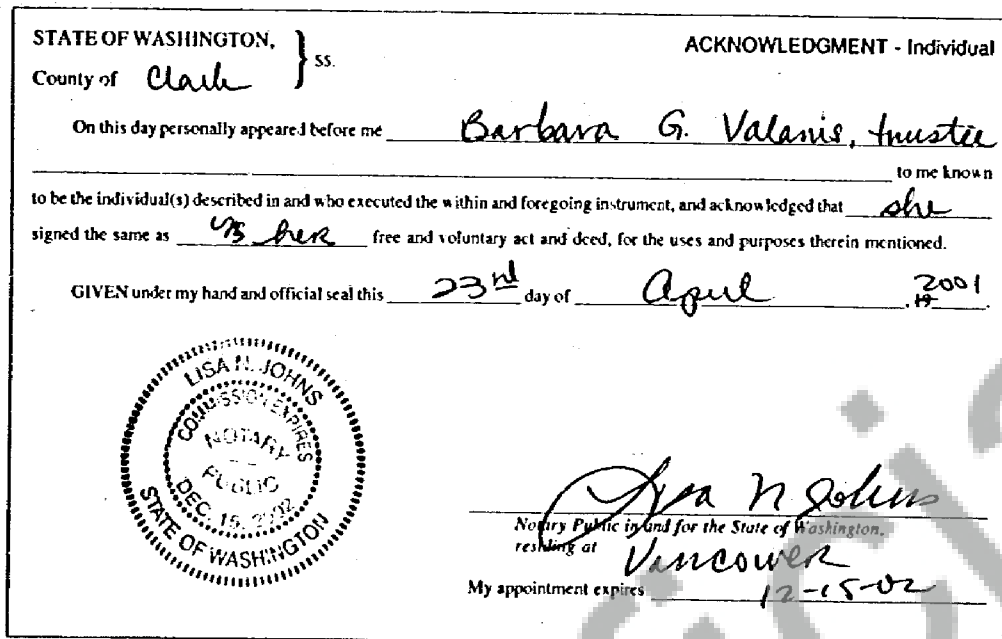 STATE OF WASHINGTON,
ss.
ACKNOWLEDGMENT - Individual
County of Clark
On this day personally appeared before me Barbara G. Valanis, trustee
to me known
to be the individual(s) described in and who executed the within and foregoing instrument, and acknowledged that she
signed the same as her free and voluntary act and deed, for the uses and purposes therein mentioned.
GIVEN under my hand and official seal this 23rd day of April, 19 2001.
LISA N. JOHNS
COMMISSION EXPIRES
NOTARY
PUBLIC
DEC. 15, 2002
STATE OF WASHINGTON
Lisa N Johns
Notary Public in and for the State of Washington,
residing at Vancouver
My appointment expires 12-15-02